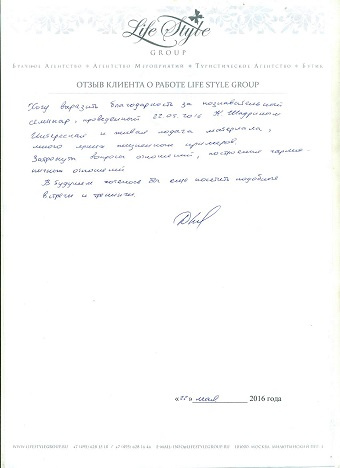 Life Style
GROUP
Брачное Агентство • Агентство Мероприятий • Туристическое Агентство • Бутик
ОТЗЫВ КЛИЕНТА О РАБОТЕ LIFE STYLE GROUP
Хочу выразить благодарность за познавательный
семинар, проведенный 22.05.2016 Н
Интересная и живая подача материала,
много ярких жизненных примеров.
Затронуты вопросы отношений, построения гармо-
ничных отношений
В будущем хотелось бы еще посетить подобные
встречи и тренинги.
мая 2016 года
WWW.LIFESTYLEGROUP.RU